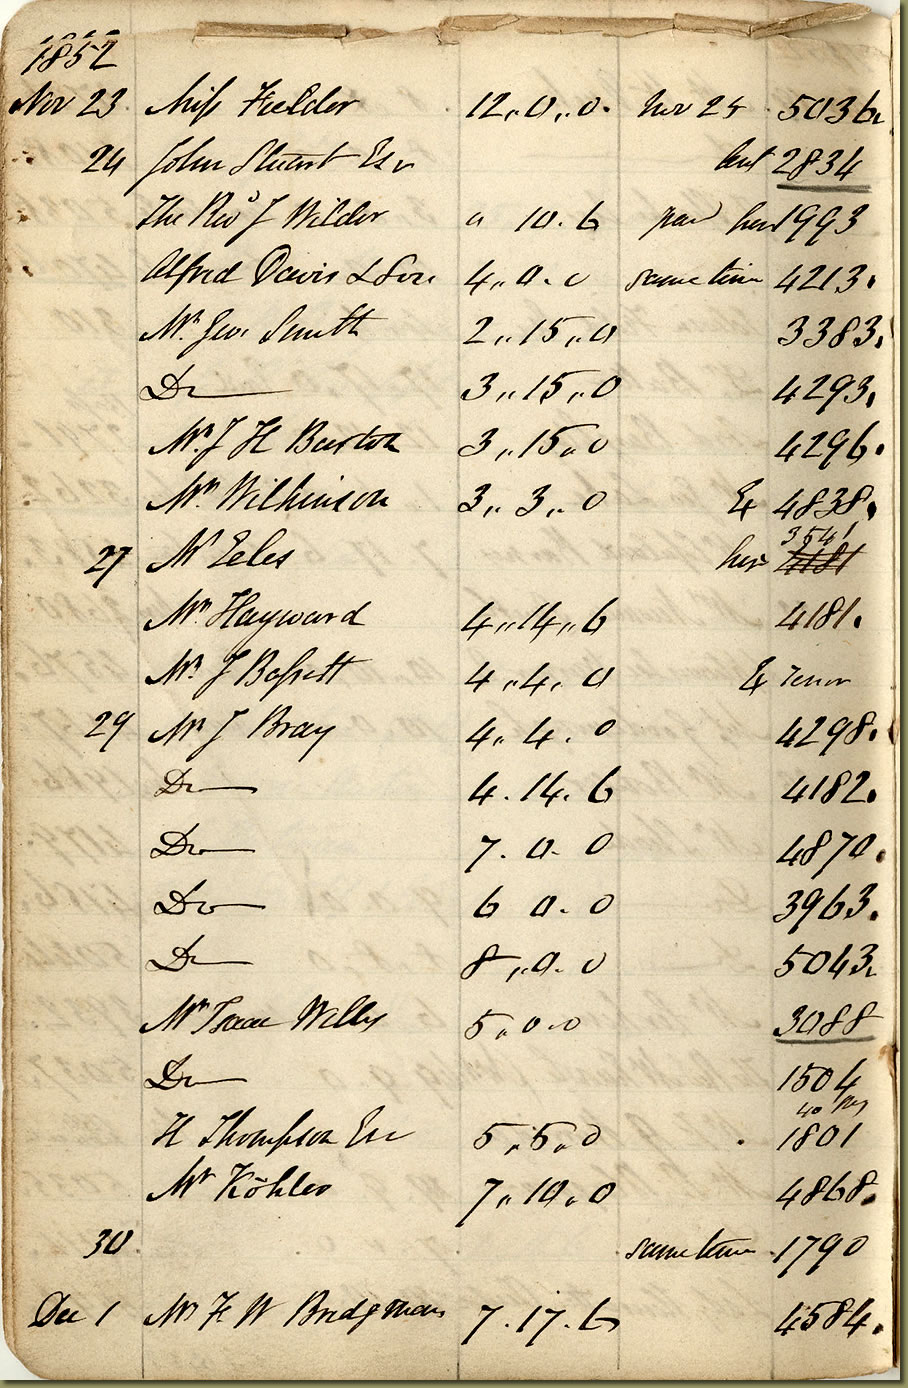 1852
Nov 23 Miss Fielder 12,,0,,0. Nov 24 5036.
24 John Stuart Esr 2834
The Revd J Wilder 10.6 1993
Alfred Davis & Son 4,,0.0 same time 4213.
Mr. Geo. Smith 2,,15,,0 3383.
Do 3,,15,,0 4293.
Mr. J H Burton 3,,15,,0 4296.
Mr. Wilkinson 3,,3,,0 Ex 4838.
3541
27 Mr Eeles 4181
Mr. Hayward 4,,14,,6 4181.
Mr. J Bassett 4,,4,,0 Ex Tenor
29 Mr J Bray 4,,4.0 4298.
Do 4.14.6 4182.
Do 7.0.0 4870.
Do 6 0.0 3963.
Do 8,,0.0 5043.
Mr Isaac Willis 5,,0.0 3088
Do 1504
H Thompson Esr 5,,5,,0 1801
Mr Köhler 7,,10,,0 4868.
30 same time 1790
Dec 1 Mr F W Bridgman 7.17.6 4584.